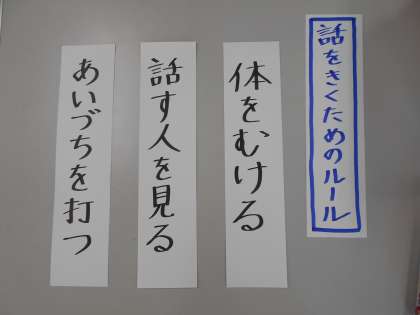 話をきくためのルール
体をむける
話す人を見る
あいづちを打つ